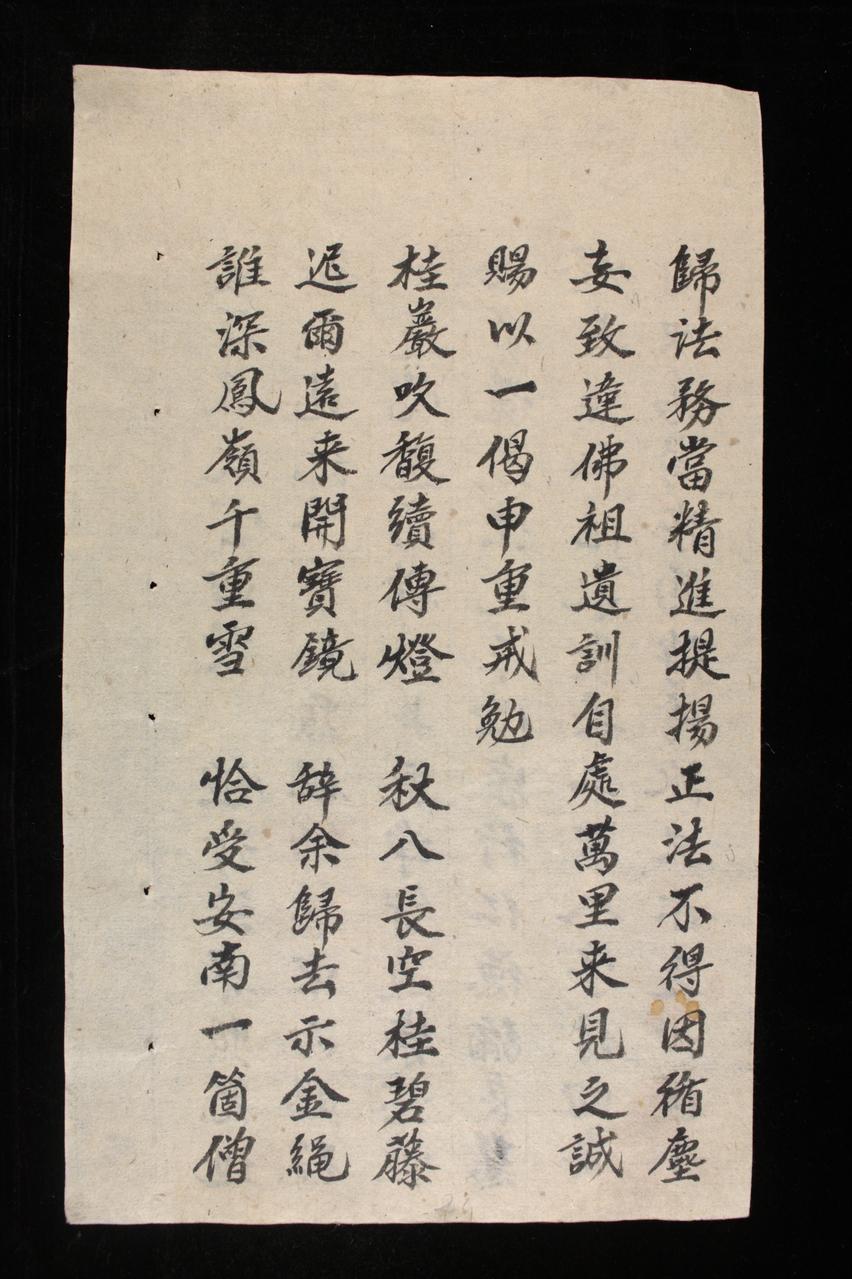 歸法務當精進提揚正法不得因循塵
妄致違佛祖遺訓自處萬里来見之誠
賜以一偈申重戒勉
桂巖吹馥續傳燈　秋八長空桂碧藤
迟爾遠来開寶鏡　辞余歸去示金繩
誰深鳳嶺千重雪　恰受安南一箇僧